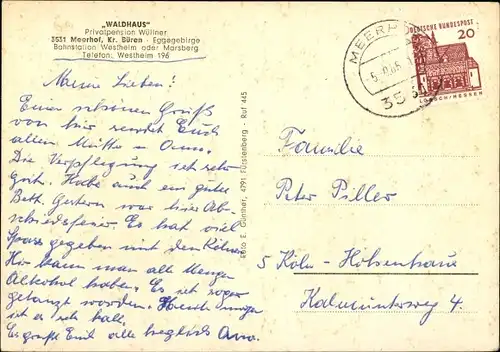 „WALDHAUS"
Privatpension Wüllner
3531 Meerhof, Kr. Büren - Eggegebirge
Bahnstation Westheim oder Marsberg
Telefon: Westheim 196
Meine Lieben!
Einen schönen Gruß
von hier sendet Euch
allen Mutti u. Oma.
Die Verpflegung ist sehr
gut. Habe auch ein gutes
Bett. Gestern war hier Ab-
schiedsfeier. Es hat viel
Spass gegeben mit den
man alle Menge
Alkohol haben. Es ist sogar
getanzt worden. Heute
ist es sehr kalt.
Es grüßt Euch alle herzlich Oma.
Foto E. Günther, 4791 Fürstenberg - Ruf 445
MEERHOF
35
DEUTSCHE BUNDESPOST
20
LORSCH/HESSEN
Familie
Peter Piller
5 Köln-Höhenhaus
Kalmünterweg 4.